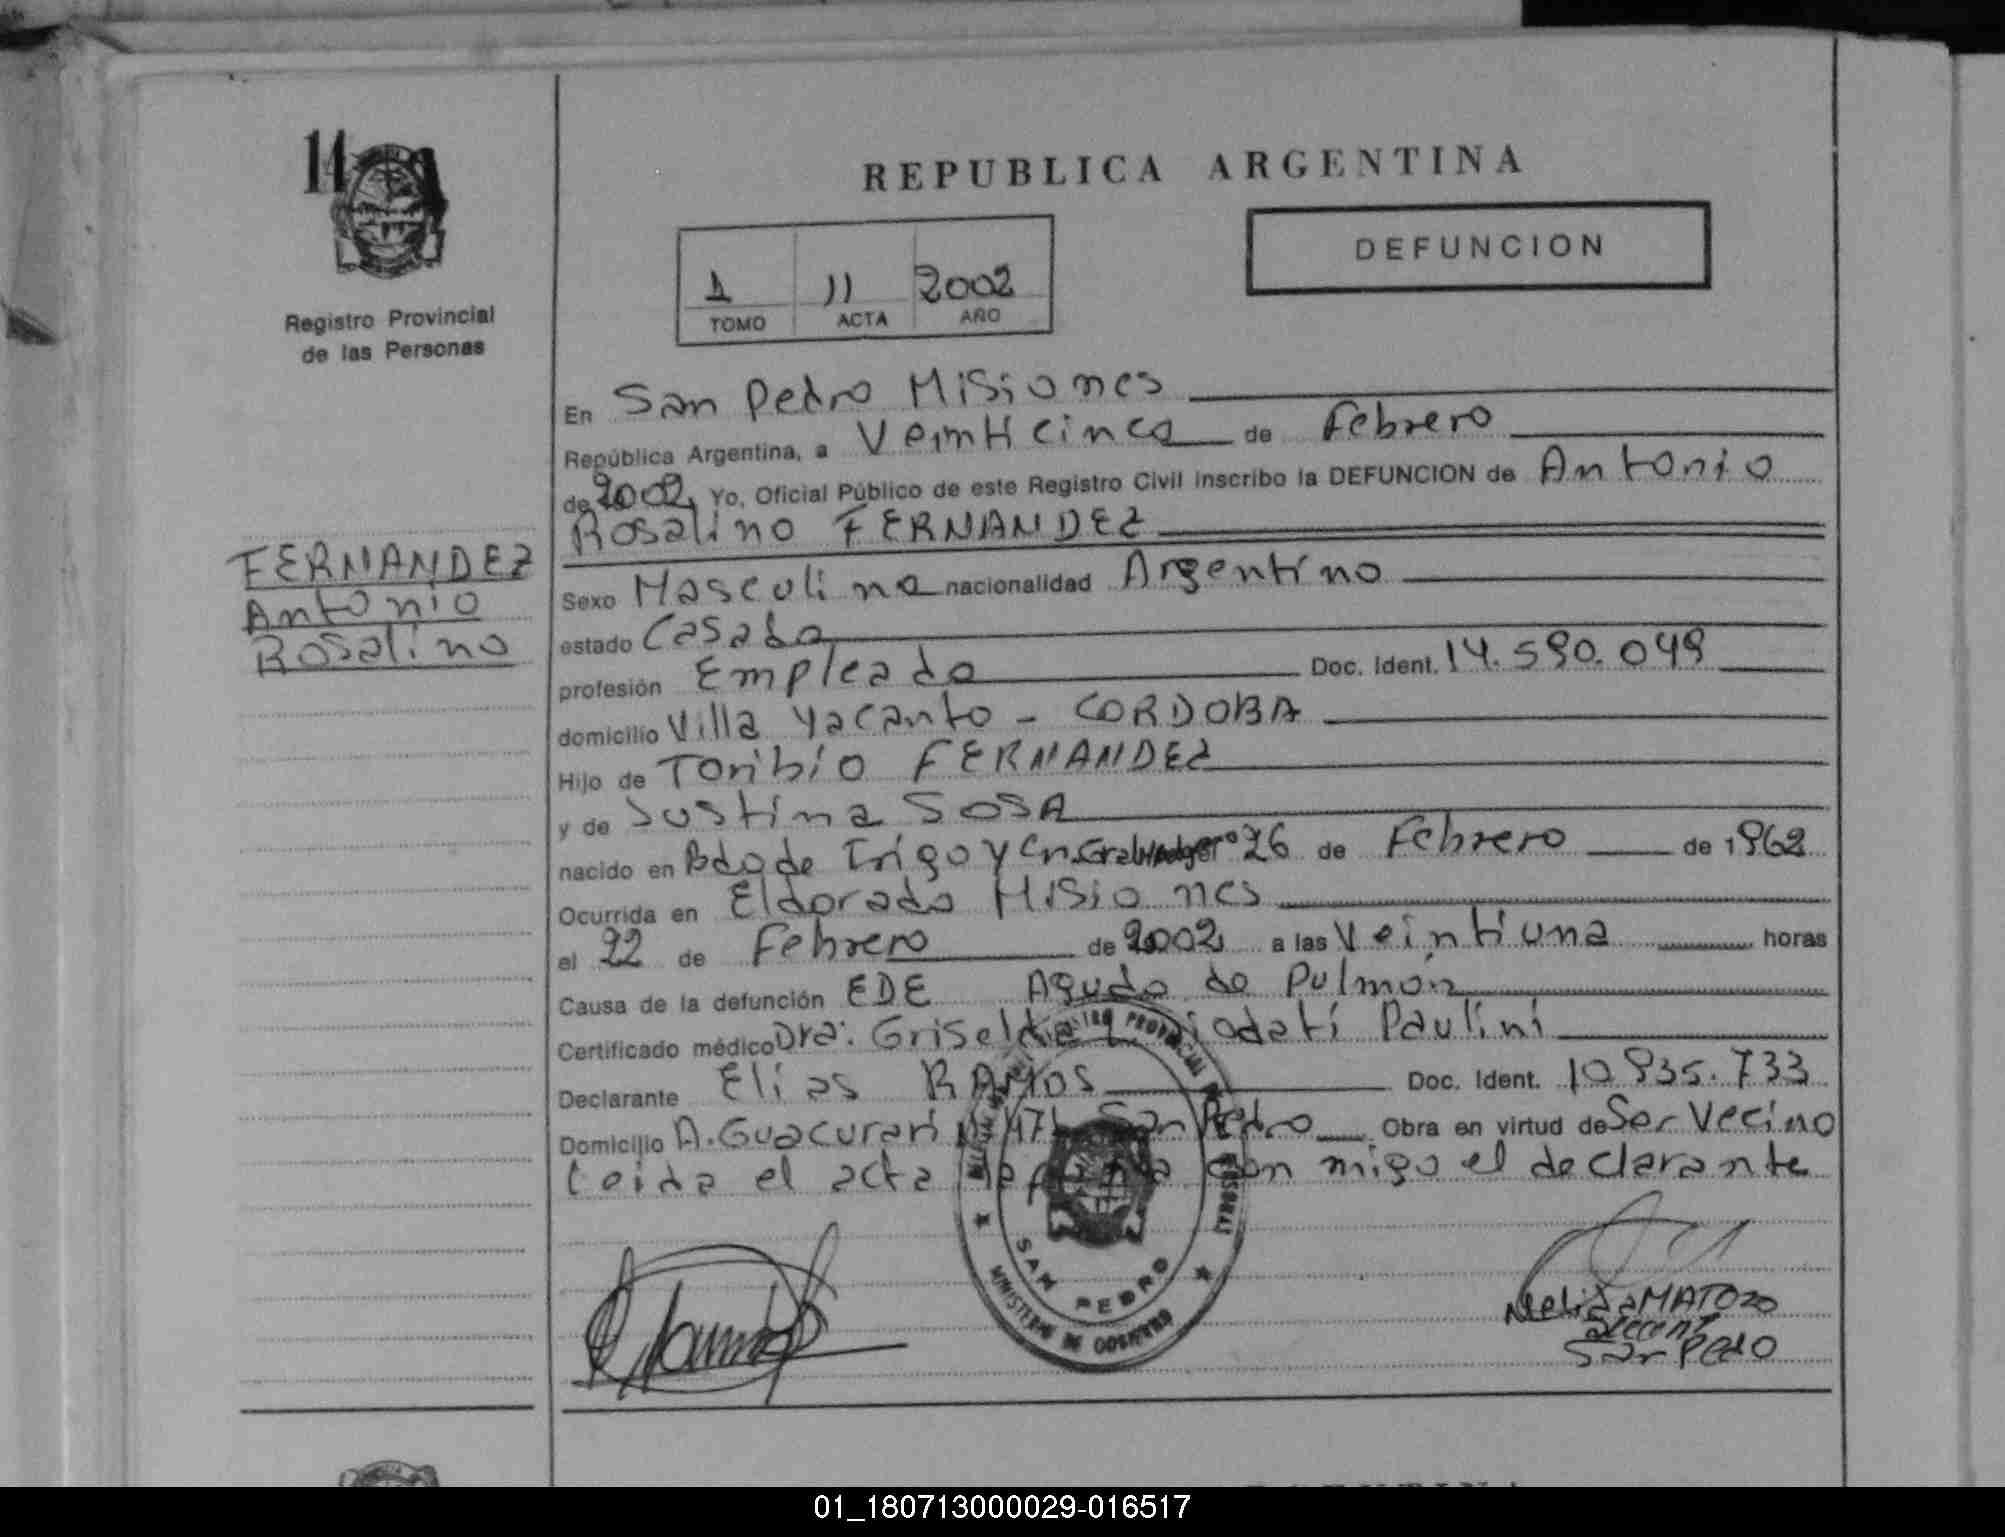 14
REPUBLICA ARGENTINA
DEFUNCION
1 11 2002
TOMO ACTA AÑO
Registro Provincial
de las Personas
En San Pedro Misiones
República Argentina, a Veinticinco de Febrero
de 2002, Yo, Oficial Público de este Registro Civil inscribo la DEFUNCION de Antonio
Rosalino FERNANDEZ
FERNANDEZ
Antonio
Rosalino
Sexo Masculino nacionalidad Argentino
estado Casado
profesión Empleado Doc. Ident. 14.590.049
domicilio Villa Yacanto - CORDOBA
Hijo de Toribio FERNANDEZ
y de Justina SOSA
nacido en Bdo de Irigoyen 26 de Febrero de 1962
Ocurrida en Eldorado Misiones
el 22 de Febrero de 2002 a las Veintiuna horas
Causa de la defunción EDE Agudo de Pulmón
Certificado médico Dra: Griselda Paulini
Declarante Elias RAMOS Doc. Ident. 10.935.733
Domicilio A. Guacurari San Pedro Obra en virtud de Ser Vecino
Leida el acta la firma con migo el declarante
SAN PEDRO
MINISTERIO DE GOBIERNO
Nelida MATOZO
San Pedro
01_180713000029-016517